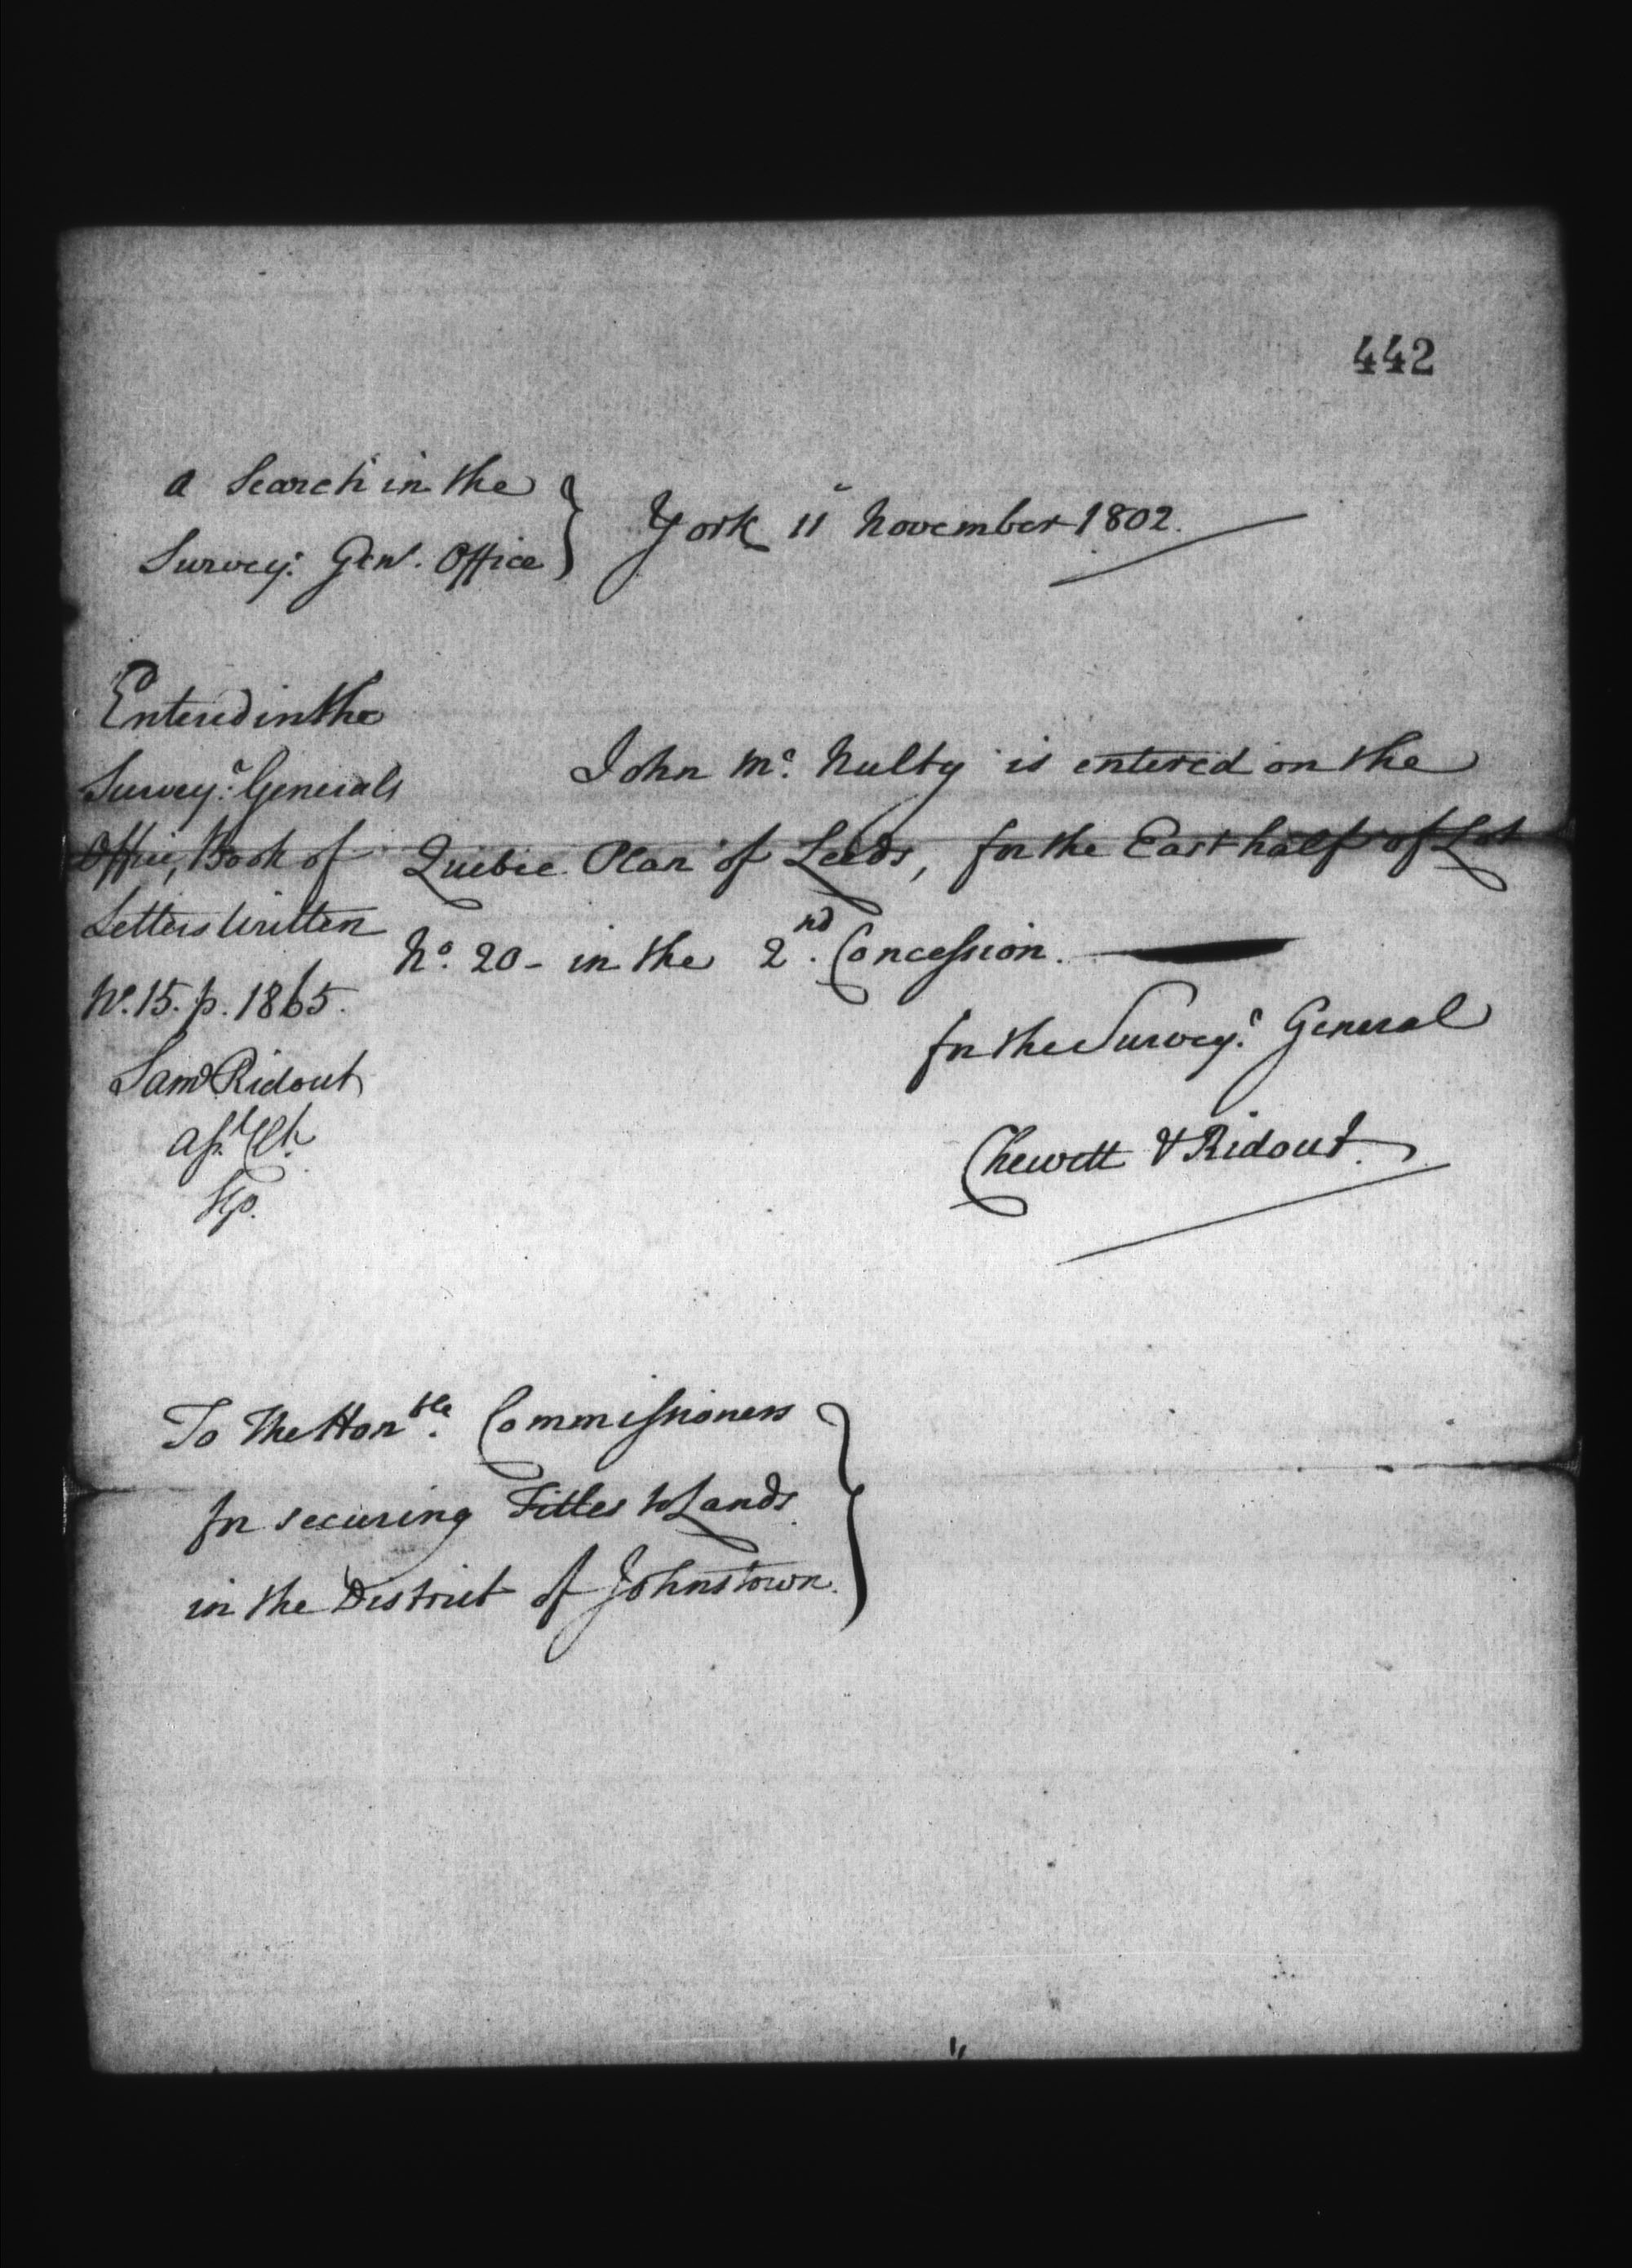 442
a Search in the
Survey.r Gen.l Office } York 11 November 1802.
Entered in the
Survey.r Generals
Office, Book of
Letters Written
No. 15. p. 1865.
Saml Ridout
Asst. Clk.
John Mc. Nulty is entered on the
Quebec Plan of Leeds, for the East half of Lot
No. 20 - in the 2nd. Concession.
for the Survey.r General
Chewett & Ridout.
To The Honble. Commissioners
for securing Titles to Lands
in the District of Johnstown.